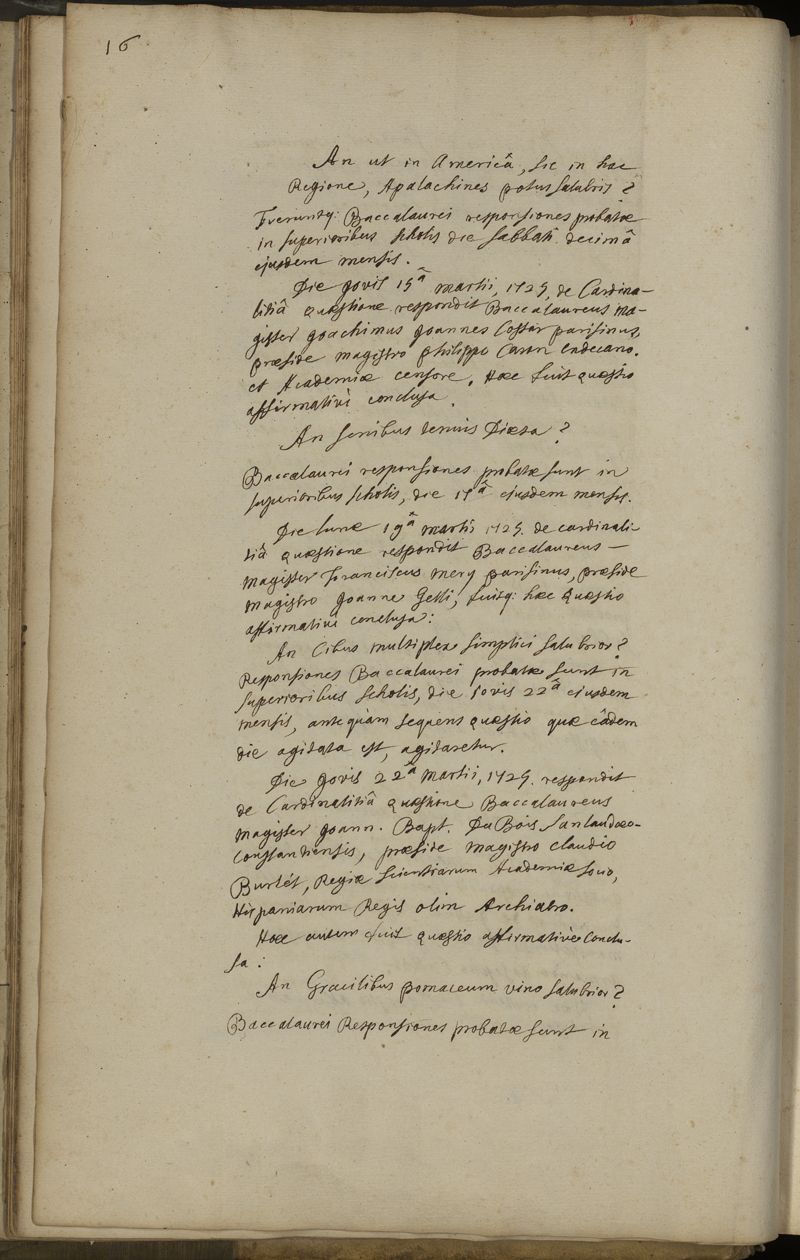 16
An ut in Americâ, sic in hac
Regione, Apalachines potus salubris?
Fueruntq; Baccalaurei responsiones probatæ
in superioribus scholis die sabbati decimâ
ejusdem mensis.
Die Jovis 15ᵃ martii, 1725, de Cardina-
litiâ quæstione respondit Baccalaureus ma-
gister Joachimus Joannes Cossar parisinus,
præside magistro philippo Caron Endecano.
et Academiæ censore. Hæc fuit quæstio
affirmativè conclusa.
An senibus tenuis Diæta?
Baccalaurei responsiones probatæ sunt in
superioribus scholis, die 17ᵃ ejusdem mensis.
Die lunæ 19ᵃ martii 1725. de cardinali-
tiâ quæstione respondit Baccalaureus —
magister franciscus mery parisinus, præside
magistro Joanne Gelli, fuitq; hæc Quæstio
affirmativè conclusa:
An Cibus multiplex simplici salubrior?
Responsiones Baccalaurei probatæ sunt in
superioribus scholis, die Jovis 22ᵃ ejusdem
mensis, antequàm sequens quæstio quæ eâdem
die agitata est, agitaretur.
Die Jovis 22ᵃ martii, 1725. respondit
de Cardinalitiâ quæstione Baccalaureus
magister Joann. Bapt. DuBois Sanlaudæo-
constantiensis, præside magistro claudio
Burlét, Regiæ scientiarum Academiæ socio,
Hispaniarum Regis olim Archiatro.
Hæc autem fuit quæstio affirmativè conclu-
sa:
An Gracilibus pomaceum vino salubrior?
Baccalaurei Responsiones probatæ sunt in